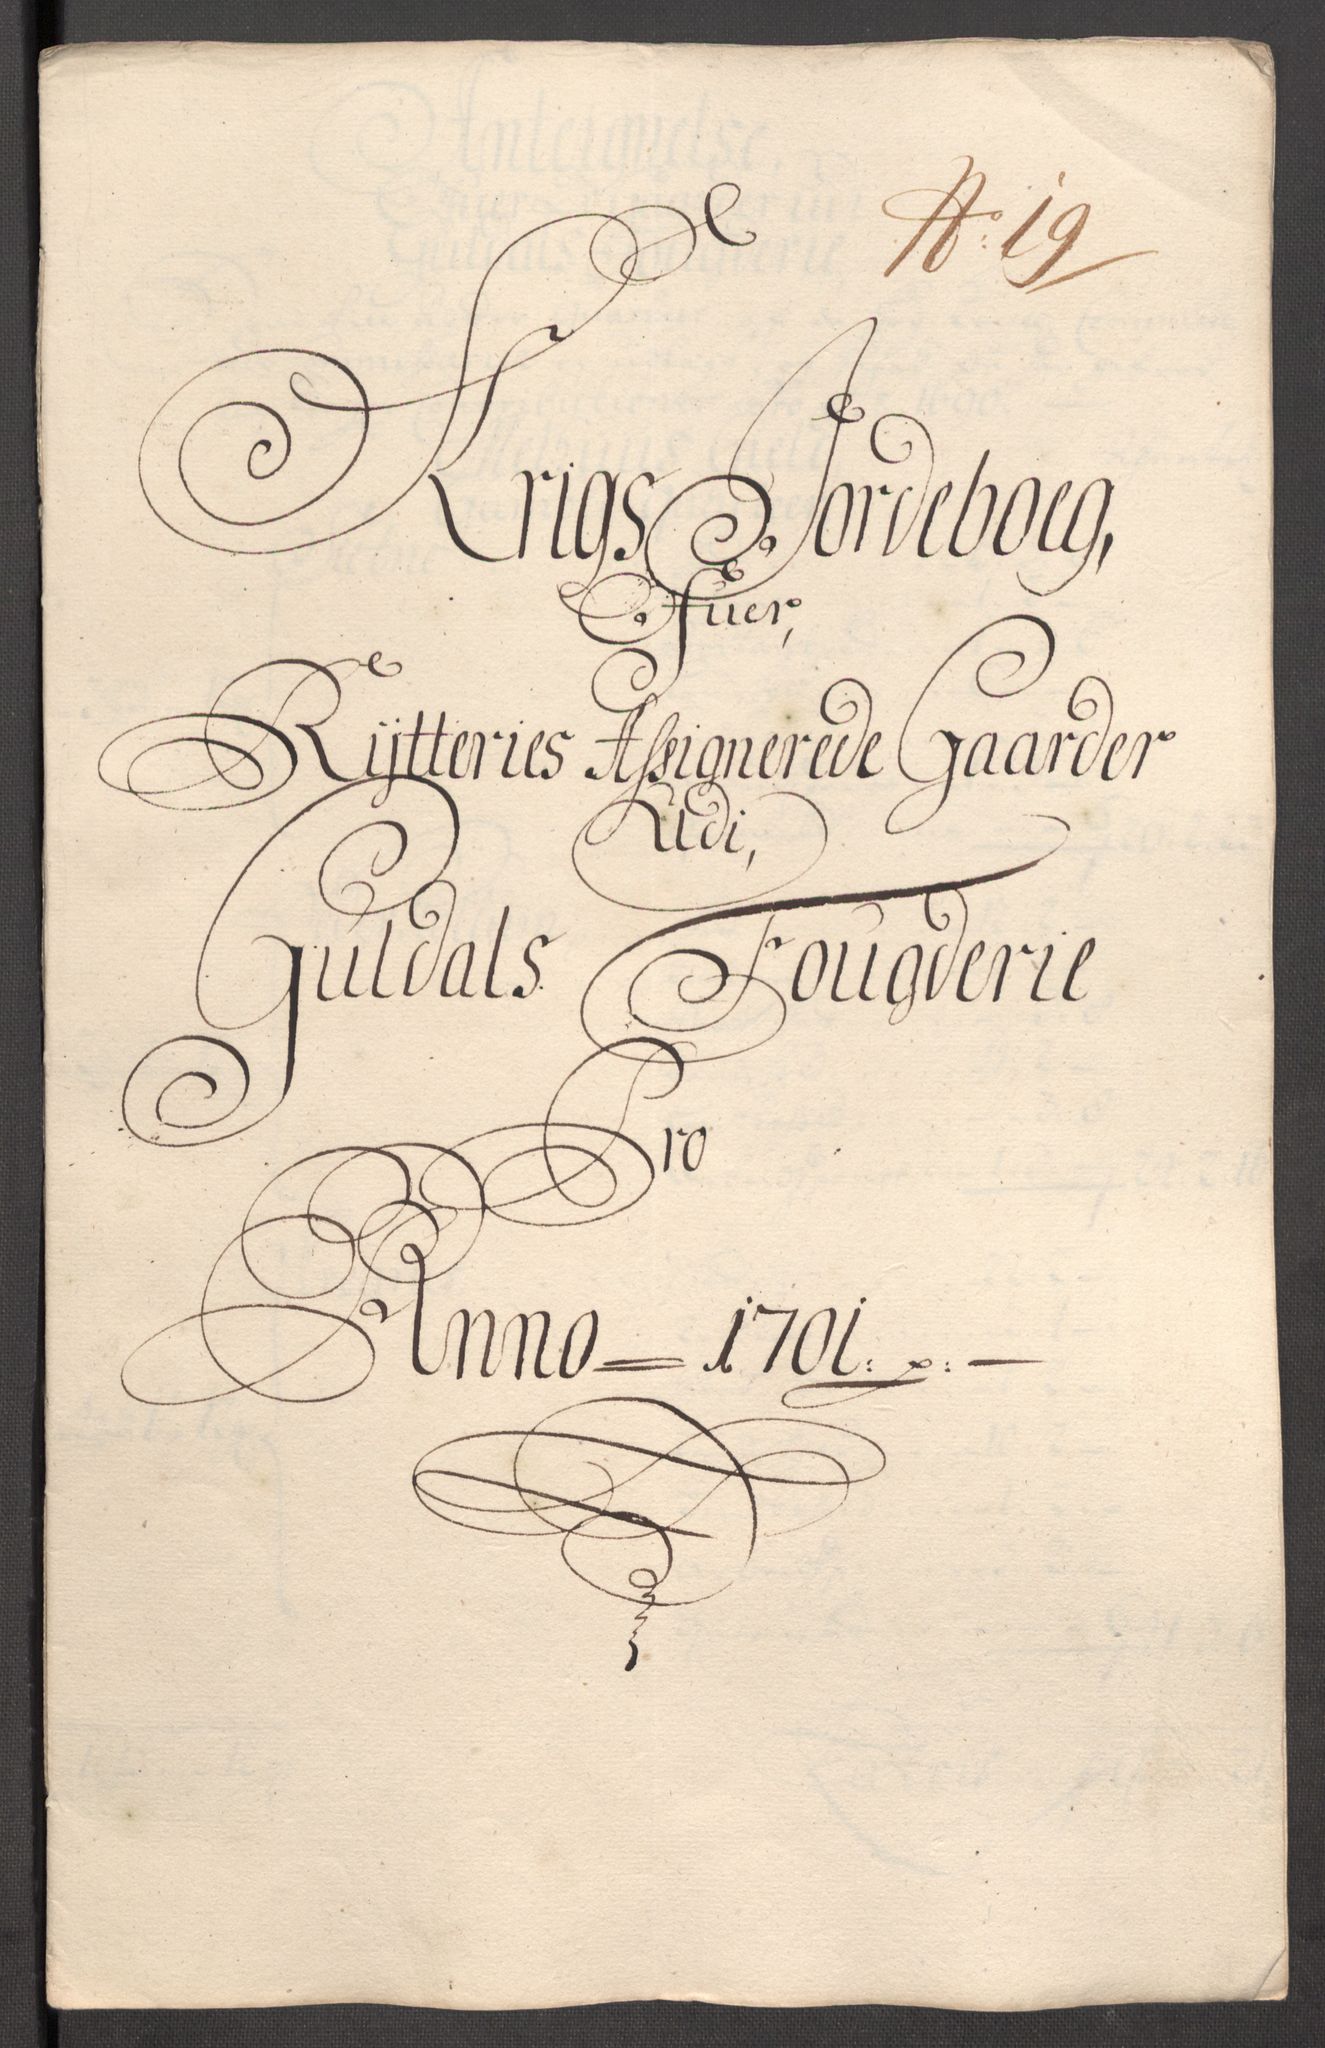 No: 19
Krigs Jordeboeg,
Ofuer,
Rÿtteriets Assignerede Gaarder
Udi,
Guldals Fougderie
Pro
Anno 1701